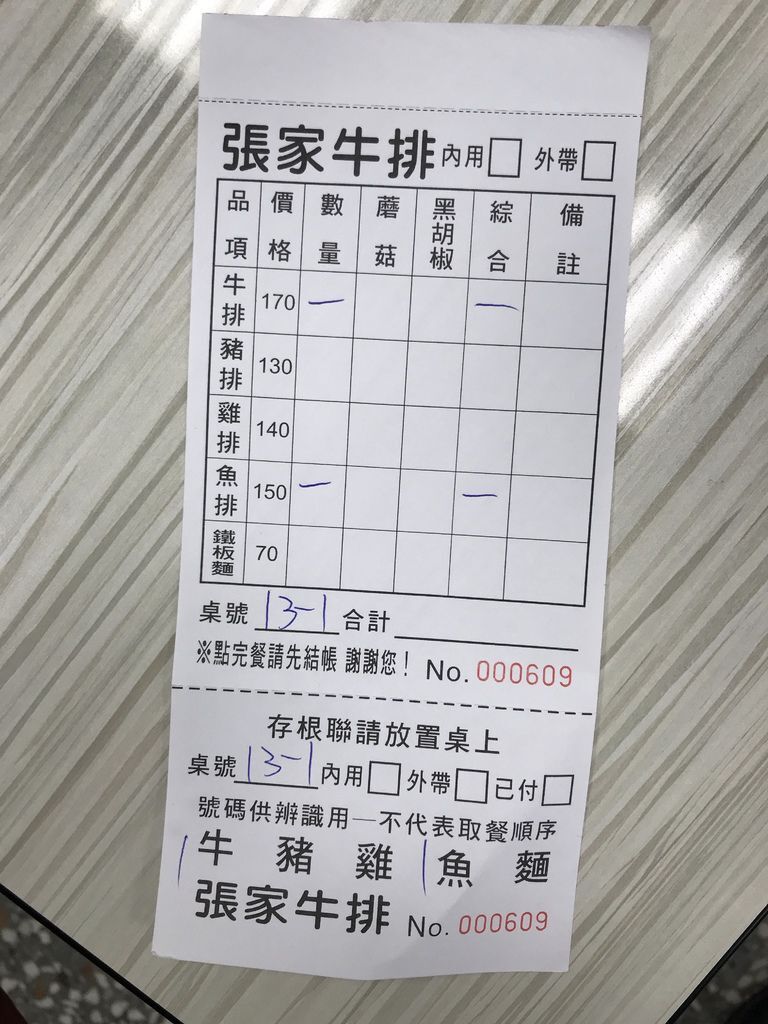 張家牛排 內用□ 外帶□
品項 價格 數量 蘑菇 黑胡椒 綜合 備註
牛排 170 一 一
豬排 130
雞排 140
魚排 150 一 一
鐵板麵 70
桌號 13-1 合計
※點完餐請先結帳 謝謝您! No. 000609
存根聯請放置桌上
桌號 13-1 內用□ 外帶□ 已付□
號碼供辨識用—不代表取餐順序
| 牛 豬 雞 | 魚 麵
張家牛排 No. 000609